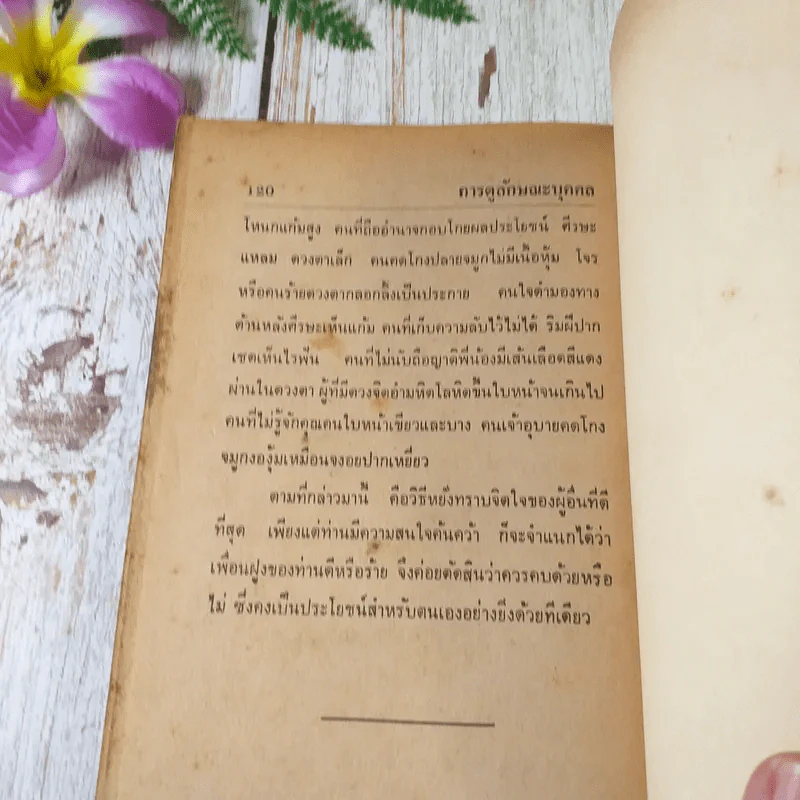 120 การดูลักษณะบุคคล
โหนกแก้มสูง คนที่ถืออำนาจกอบโกยผลประโยชน์ ศีรษะ
แหลม ดวงตาเล็ก คนคดโกงปลายจมูกไม่มีเนื้อหุ้ม โจร
หรือคนร้ายดวงตากลอกลิ้งเป็นประกาย คนใจดำมองทาง
ด้านหลังศีรษะเห็นแก้ม คนที่เก็บความลับไว้ไม่ได้ ริมฝีปาก
เชดเห็นไรฟัน คนที่ไม่นับถือญาติพี่น้องมีเส้นเลือดสีแดง
ผ่านในดวงตา ผู้ที่มีดวงจิตอำมหิตโลหิตขึ้นใบหน้าจนเกินไป
คนที่ไม่รู้จักคุณคนใบหน้าเขียวและบาง คนเจ้าอุบายคดโกง
จมูกงองุ้มเหมือนจงอยปากเหยี่ยว
ตามที่กล่าวมานี้ คือวิธีหยั่งทราบจิตใจของผู้อื่นที่ดี
ที่สุด เพียงแต่ท่านมีความสนใจค้นคว้า ก็จะจำแนกได้ว่า
เพื่อนฝูงของท่านดีหรือร้าย จึงค่อยตัดสินว่าควรคบด้วยหรือ
ไม่ ซึ่งคงเป็นประโยชน์สำหรับตนเองอย่างยิ่งด้วยทีเดียว